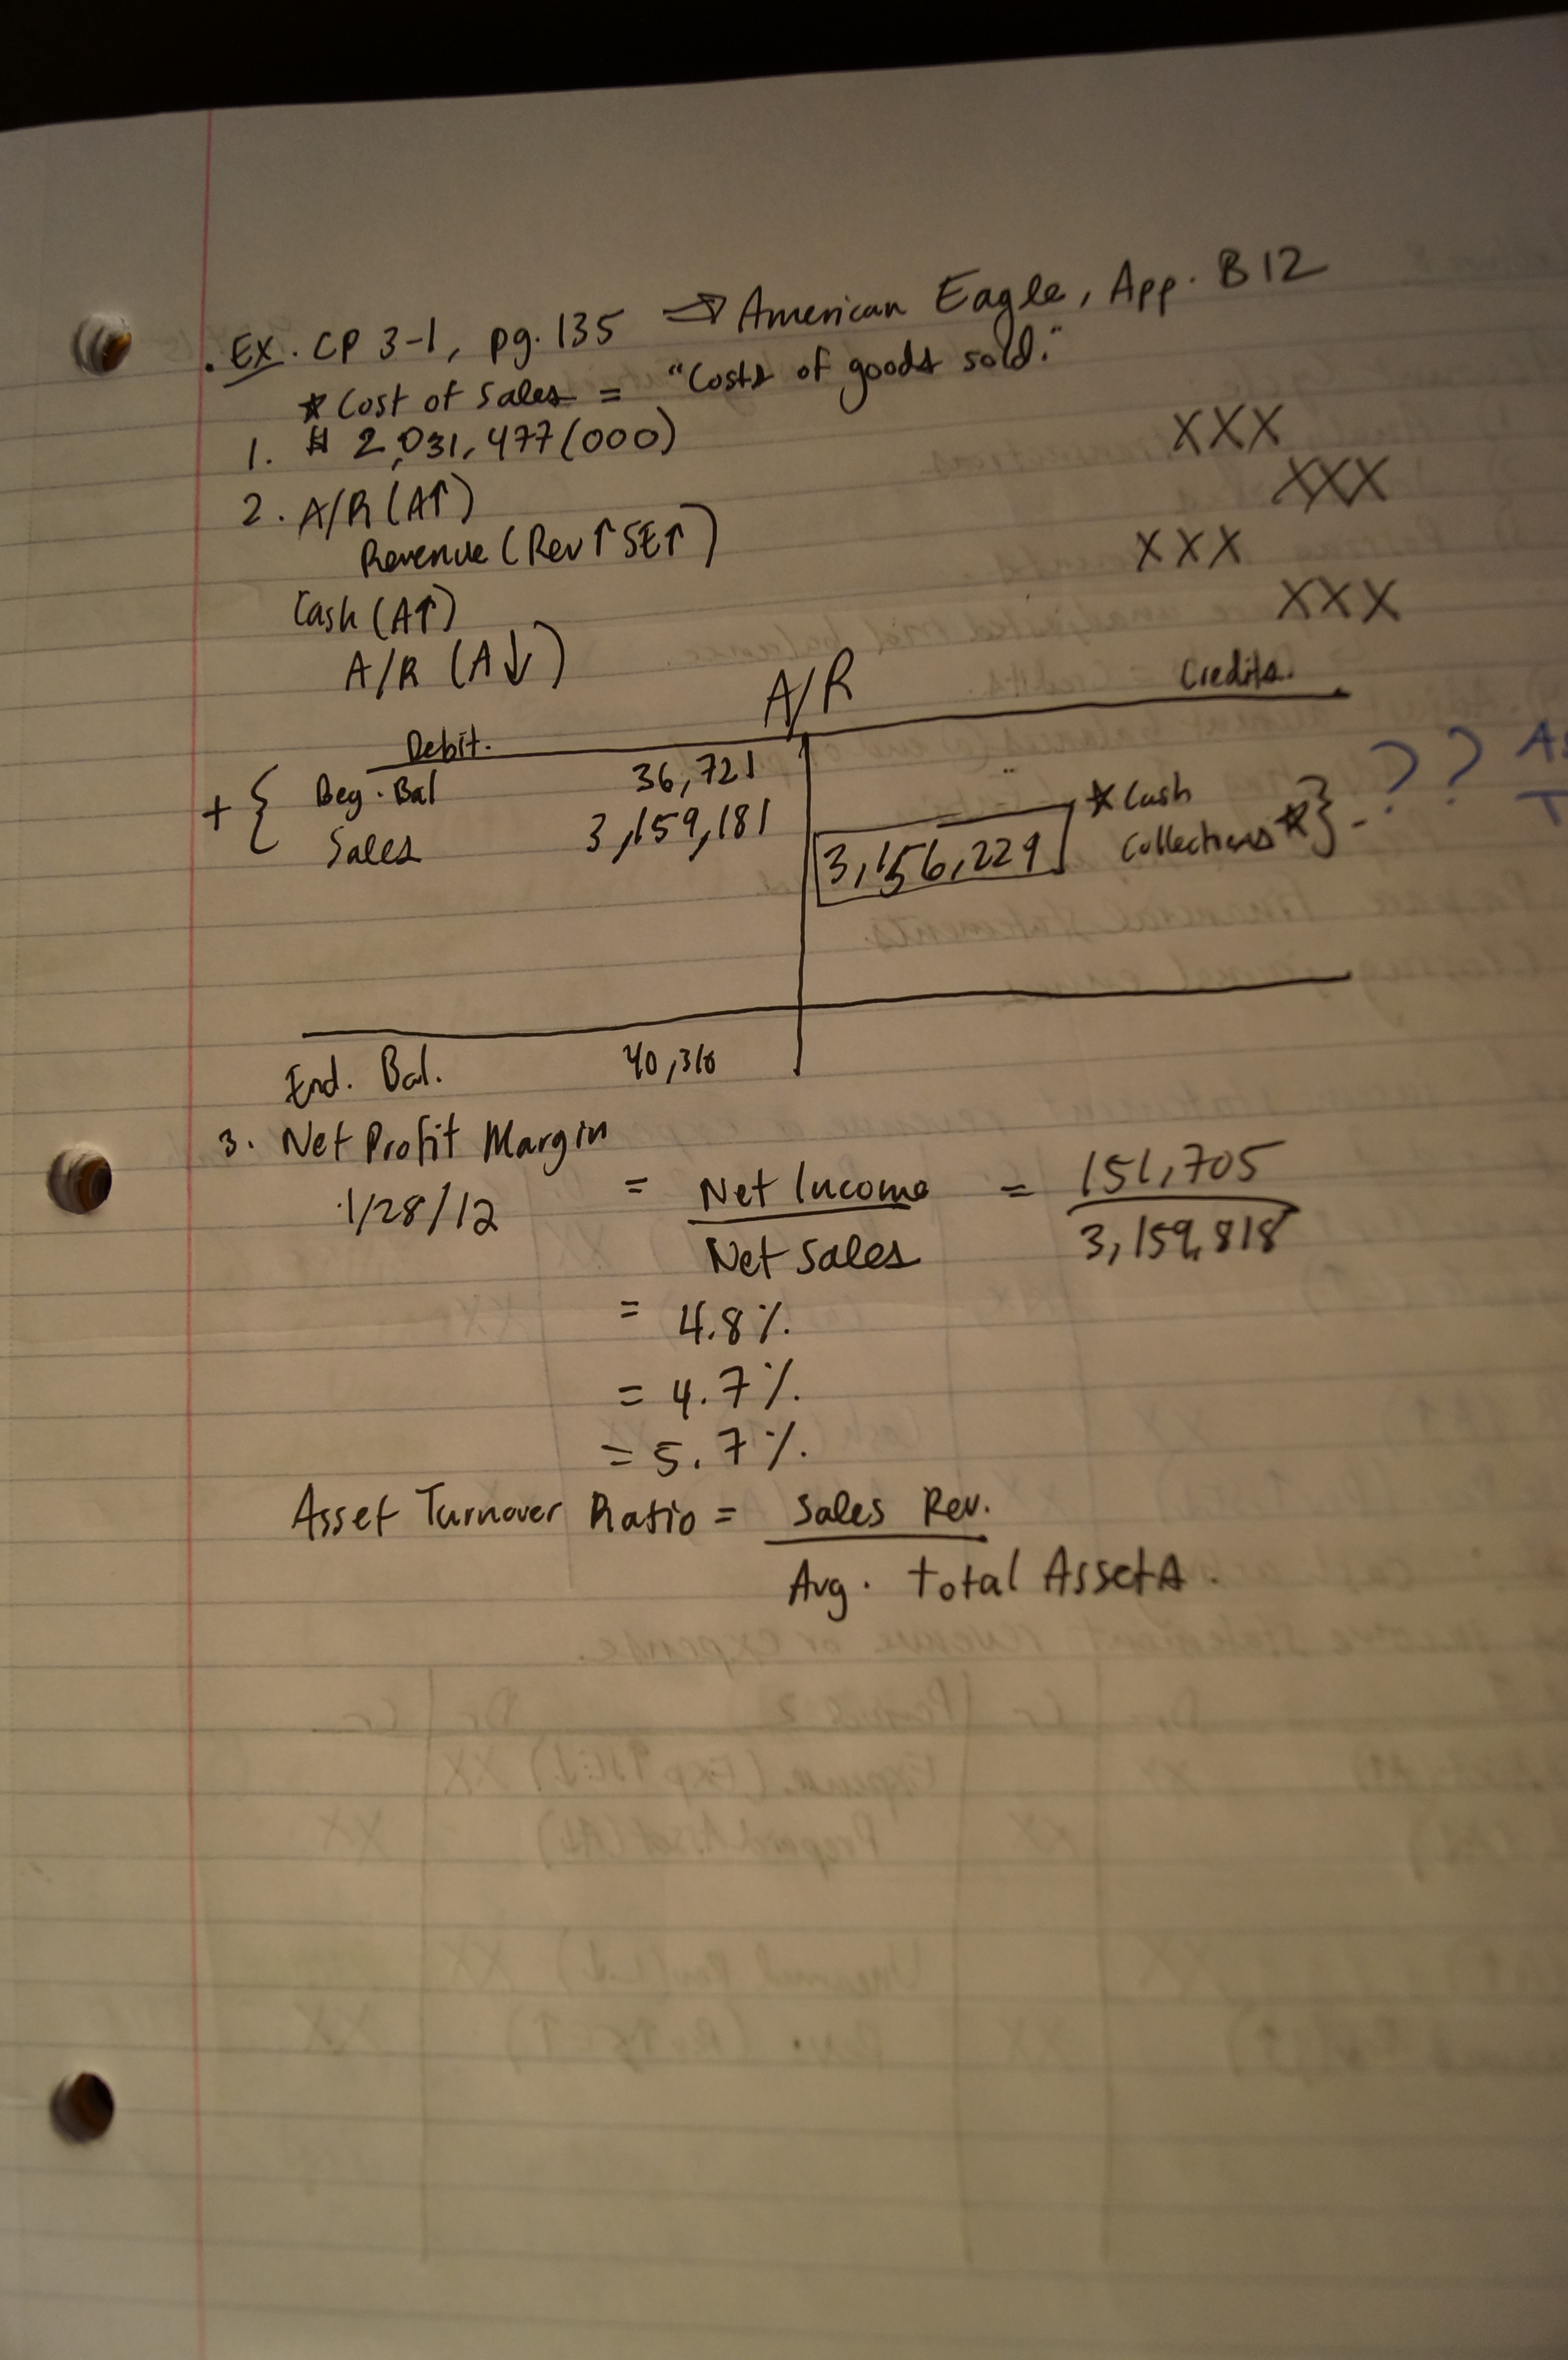 . Ex. CP 3-1, pg. 135 ⇒ American Eagle, App. B12
* Cost of Sales = "Costs of goods sold."
1. $ 2,031,477(000)
XXX
2. A/R (A↑)
XXX
Revenue (Rev↑SE↑)
XXX
Cash (A↑)
XXX
A/R (A↓)
A/R
Debit. Credits.
+ { Beg. Bal 36,721
Sales 3,159,181
3,156,229 * Cash Collections * } - ? ?
End. Bal. 40,310
3. Net Profit Margin
1/28/12 = Net Income = 151,705
Net Sales 3,159,818
= 4.8%.
= 4.7%.
= 5.7%.
Asset Turnover Ratio = Sales Rev.
Avg. total Assets.